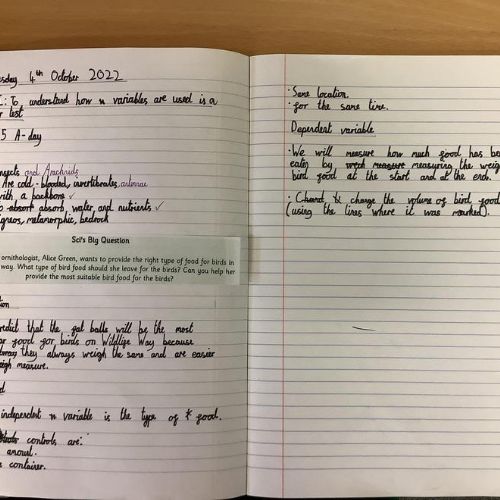 sday 4th October 2022
: To understand how variables are used is a
r test
5 A-day
nsects and Arachnids
Are cold-blooded, invertebrates, antennae
with a backbone ✓
o absorb, water, and nutrients ✓
igneos, metamorphic, bedrock
Sci's Big Question
ornithologist, Alice Green, wants to provide the right type of food for birds in
way. What type of bird food should she leave for the birds? Can you help her
provide the most suitable bird food for the birds?
tion
redict that the fat balls will be the most
ar food for birds on Wildlife Way because
they always weigh the same and are easier
eigh measure.
d
independent variable is the type of food.
controls are:
amout.
e container.
· Same location.
· for the same time.
Dependent variable
· We will measure how much food has be
eaten by measuring the weig
bird food at the start and at the end.
· change the volume of bird food
(using the lines where it was marked).